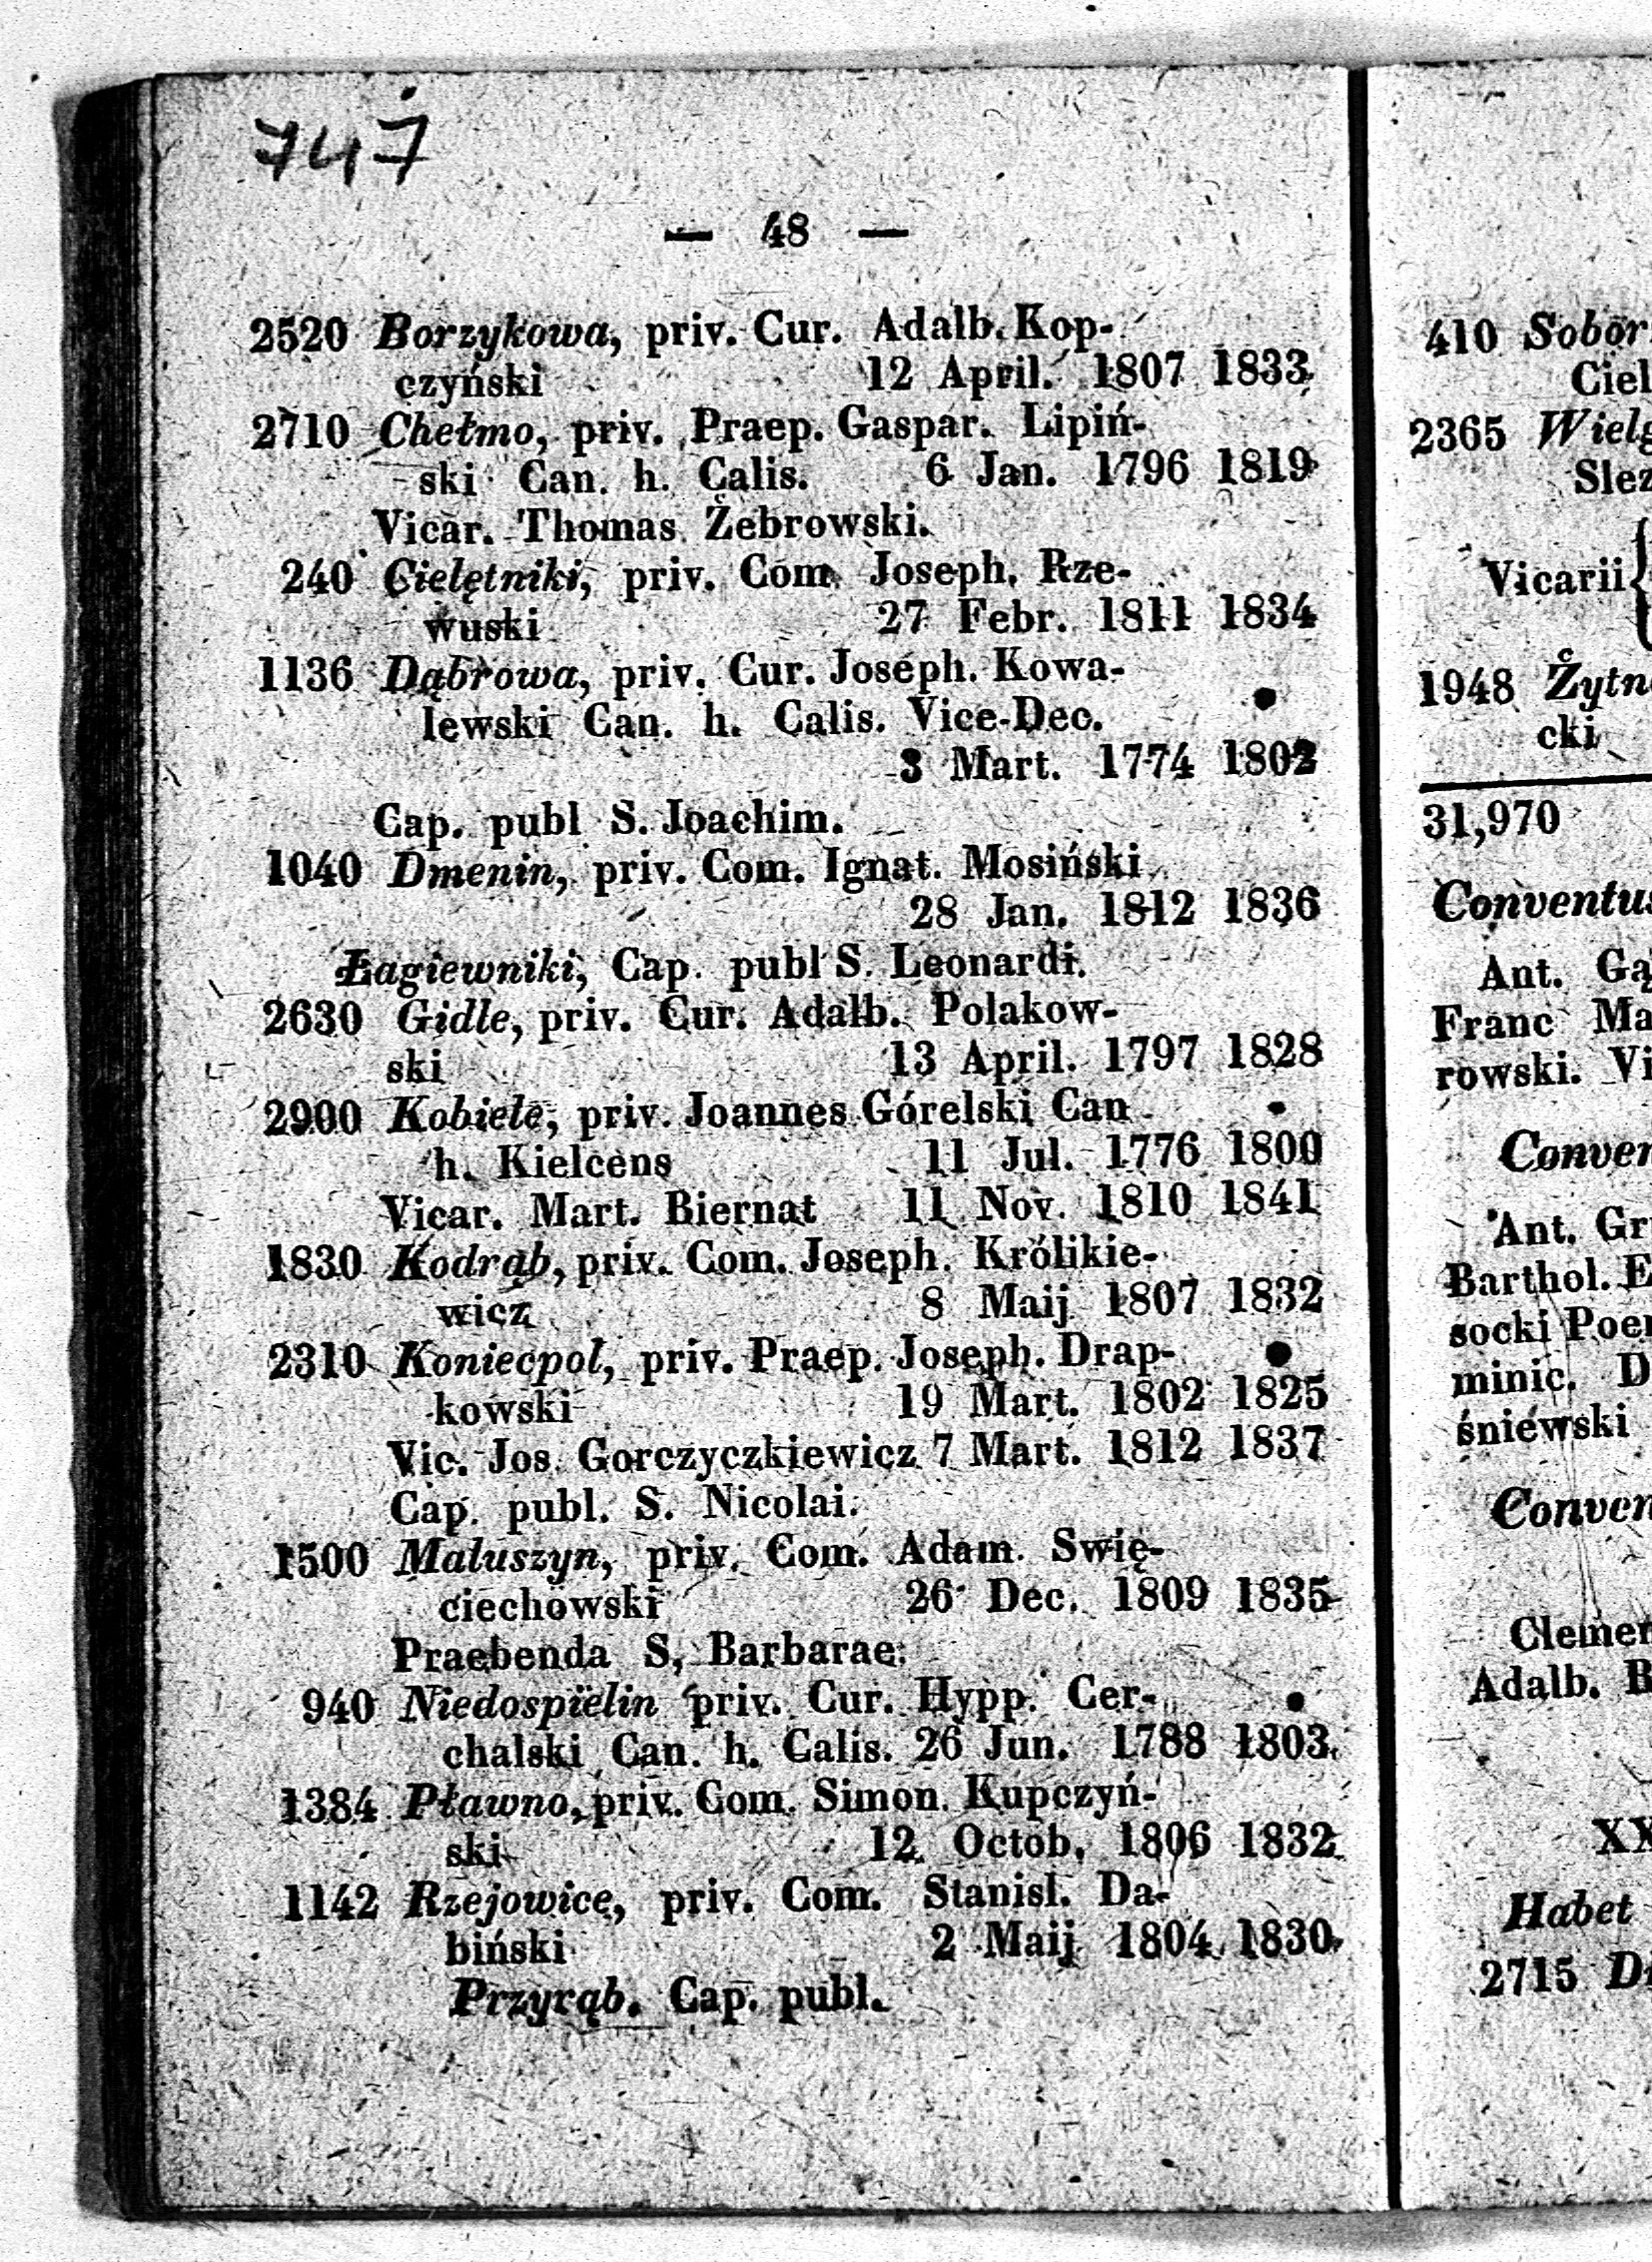 747
— 48 —
2520 Borzykowa, priv. Cur. Adalb. Kop-
czyński 12 April. 1807 1833
2710 Chełmo, priv. Praep. Gaspar. Lipiń-
ski Can. h. Calis. 6 Jan. 1796 1819
Vicar. Thomas Żebrowski.
240 Cielętniki, priv. Com. Joseph. Rze-
wuski 27 Febr. 1811 1834
1136 Dąbrowa, priv. Cur. Joseph. Kowa-
lewski Can. h. Calis. Vice-Dec.
3 Mart. 1774 1802
Cap. publ S. Joachim.
1040 Dmenin, priv. Com. Ignat. Mosiński
28 Jan. 1812 1836
Łagiewniki, Cap. publ S. Leonardi.
2630 Gidle, priv. Cur. Adalb. Polakow-
ski 13 April. 1797 1828
2900 Kobiele, priv. Joannes Górelski Can
h. Kielcens 11 Jul. 1776 1800
Vicar. Mart. Biernat 11 Nov. 1810 1841
1830 Kodrąb, priv. Com. Joseph. Królikie-
wicz 8 Maij 1807 1832
2310 Koniecpol, priv. Praep. Joseph. Drap-
kowski 19 Mart. 1802 1825
Vic. Jos. Gorczyczkiewicz 7 Mart. 1812 1837
Cap. publ. S. Nicolai.
1500 Maluszyn, priv. Com. Adam. Swię-
ciechowski 26 Dec. 1809 1835
Praebenda S. Barbarae.
940 Niedospielin priv. Cur. Hypp. Cer-
chalski Can. h. Calis. 26 Jun. 1788 1803.
1384 Pławno, priv. Com. Simon. Kupczyń-
ski 12 Octob. 1806 1832
1142 Rzejowice, priv. Com. Stanisl. Da-
biński 2 Maij 1804 1830
Przyrąb. Cap. publ.
410 Sobor
Ciel
2365 Wielg
Slez
Vicarii
1948 Żytn
cki
31,970
Conventus
Ant. Gą
Franc Ma
rowski. Vi
Conven
Ant. Gr
Barthol. E
socki Poen
minic. D
śniewski
Conven
Clemen
Adalb. R
XX
Habet
2715 D